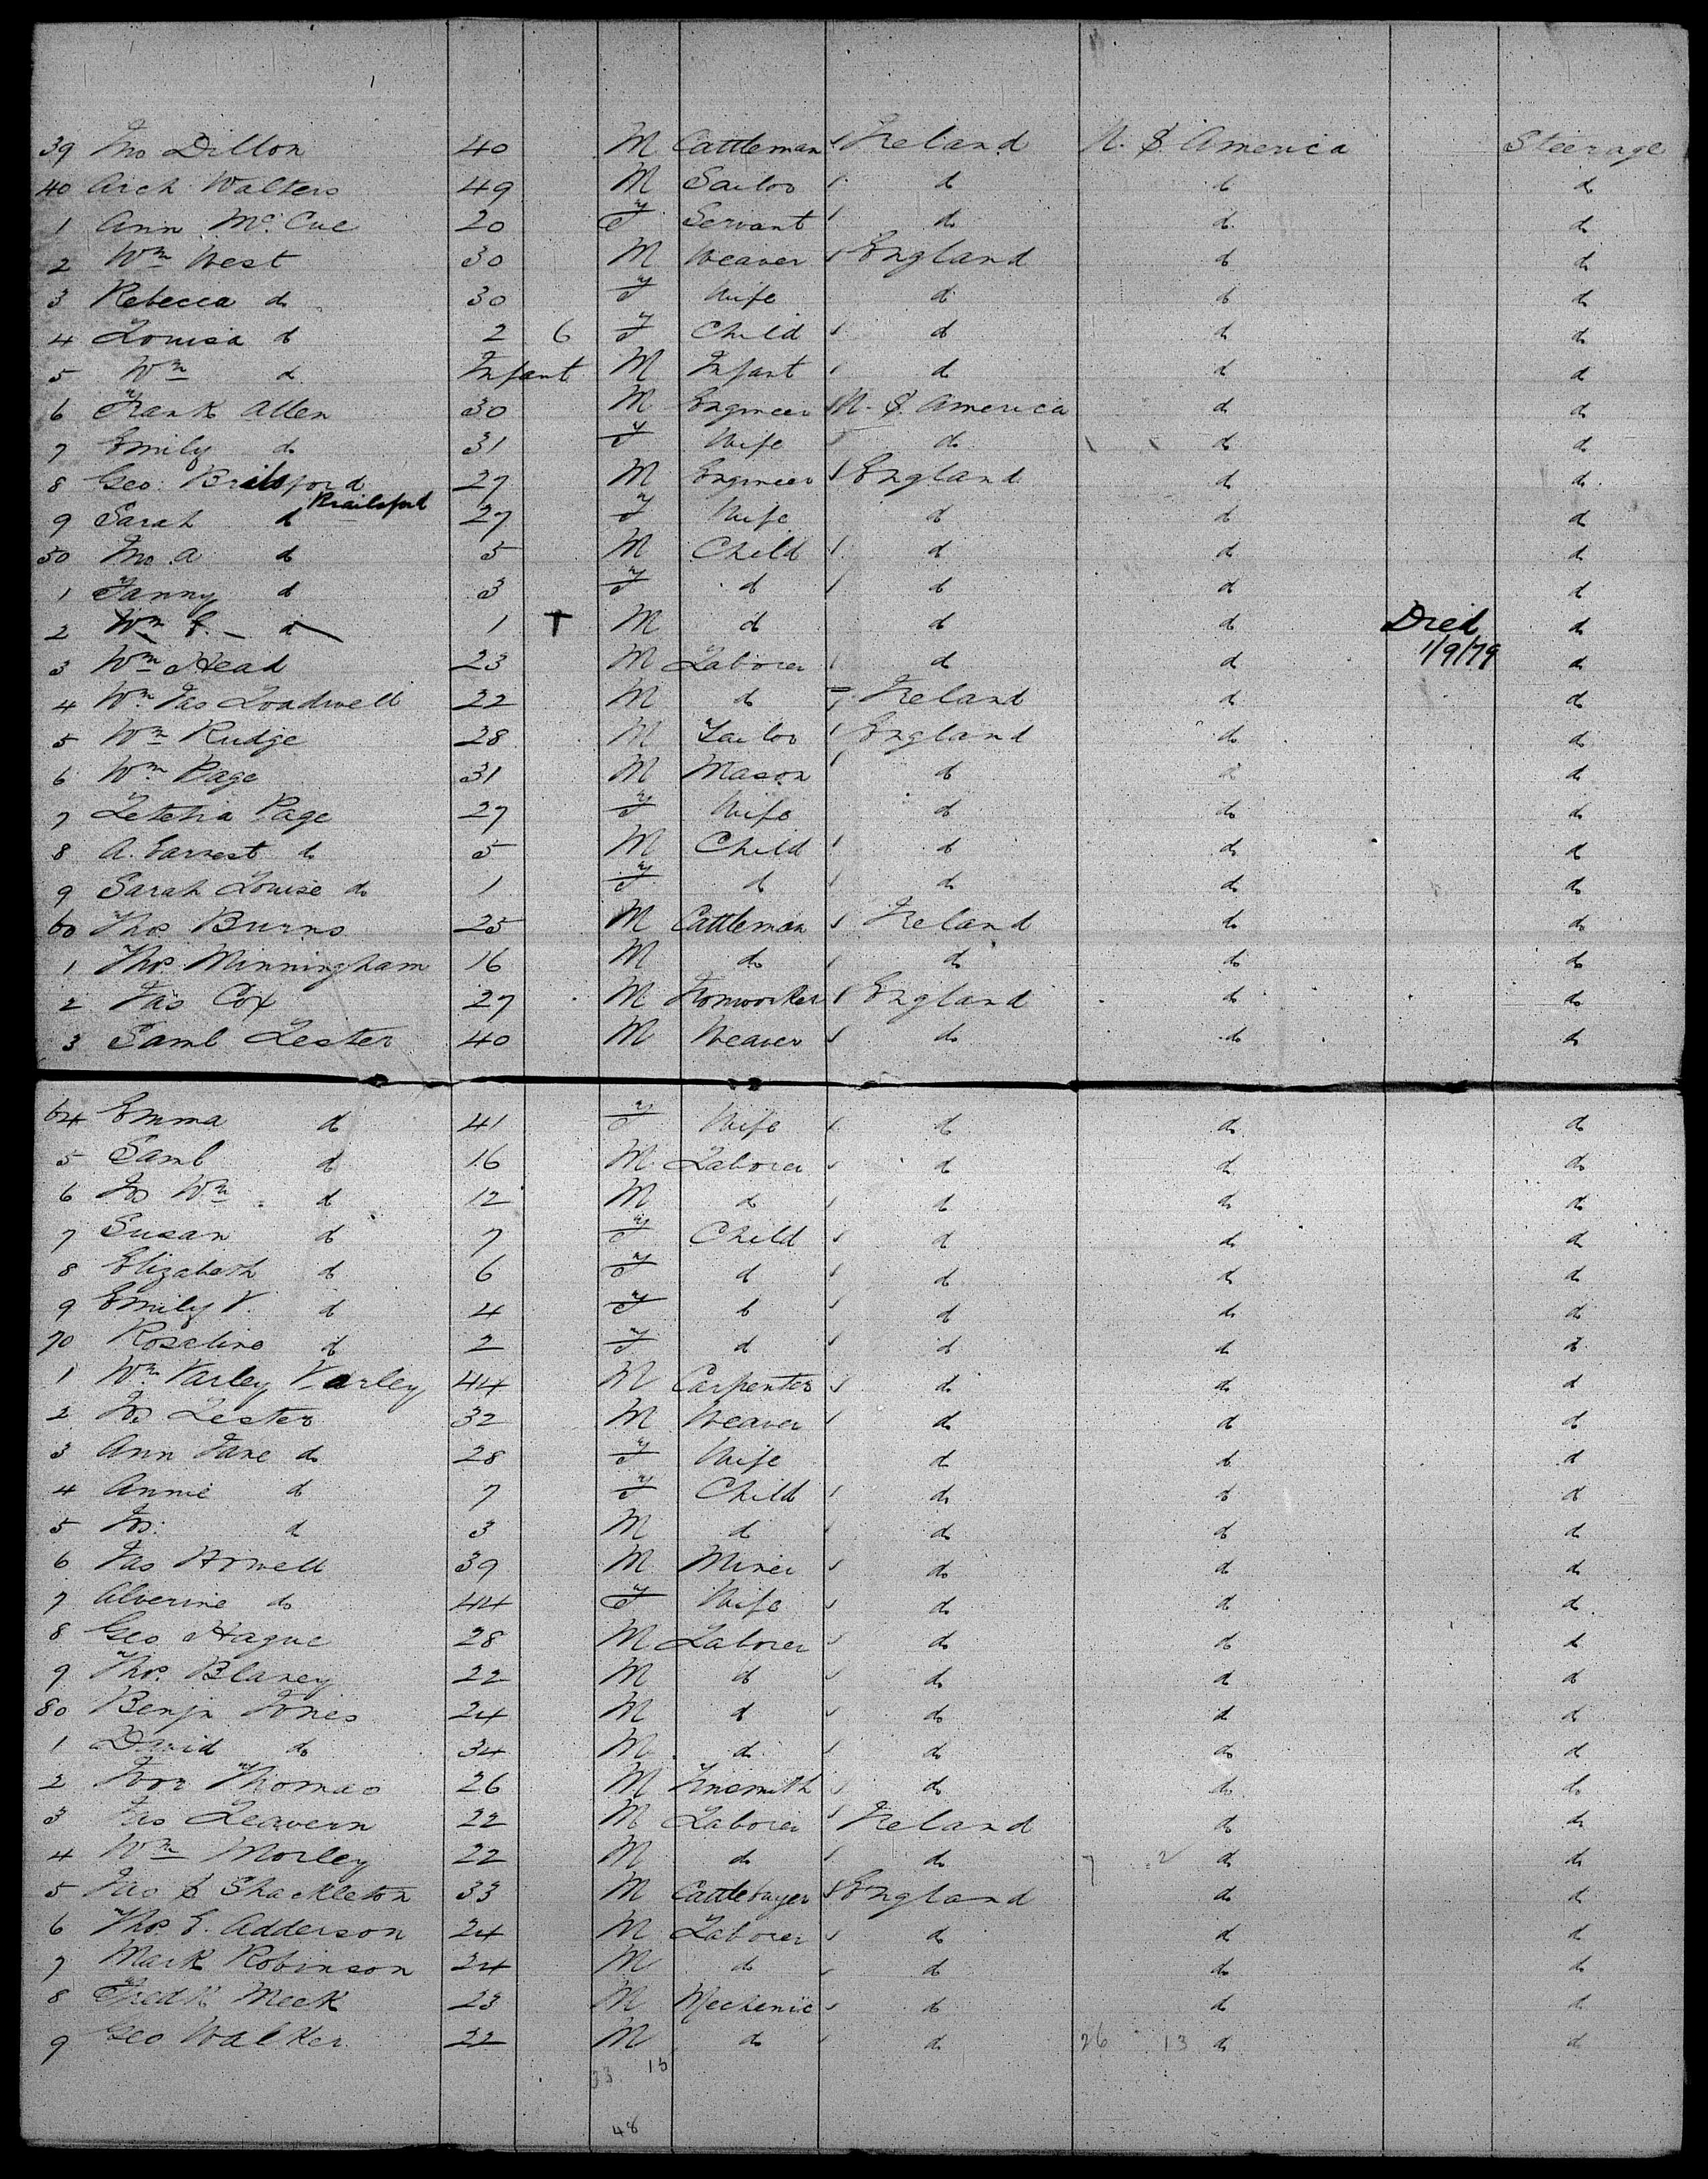 39 Jno Dillon 40 M Cattleman Ireland U. S. America Steerage
40 Arch Walters 49 M Sailor d d d
1 Ann McCue 20 F Servant d d d
2 Wm West 30 M Weaver England d d
3 Rebecca do 30 F Wife d d d
4 Louisa d 2 6 F Child d d d
5 Wm d Infant M Infant d d d
6 Frank Allen 30 M Engineer U. S. America d d
7 Emily do 31 F Wife do d d
8 Geo. Brailsford 27 M Engineer England d d
Brailsford
9 Sarah d 27 F Wife d d d
50 Jno. A d 5 M Child d d d
1 Fanny d 3 F d d d d
2 Wm G. d 1 T M d d d Died d
1/9/79
3 Wm Head 23 M Laborer d d d
4 Wm Jas Loadwell 22 M do Ireland d d
5 Wm Rudge 28 M Tailor England do d
6 Wm Page 31 M Mason d d d
7 Letetia Page 27 F Wife d do d
8 A. Earnest do 5 M Child d do d
9 Sarah Louise do 1 F d d do do
60 Thos Burns 25 M Cattleman Ireland do do
1 Thos. Minningham 16 M do do do do
2 Jas Cox 27 M Ironworker England do do
3 Saml Lester 40 M Weaver do do do
64 Emma d 41 F Wife d do do
5 Saml d 16 M Laborer d d do
6 Jos Wm d 12 M d d do do
7 Susan d 7 F Child d do d
8 Elizabeth d 6 F d d d do
9 Emily V. d 4 F d d do do
70 Roseline d 2 F d d d d
1 Wm Varley Varley 44 M Carpenter do do d
2 Jos Lester 32 M Weaver d d d
3 Ann Jane do 28 F Wife d d d
4 Annie d 7 F Child do d d
5 Jos. d 3 M d do d d
6 Jas Atwell 39 M Miner do d do
7 Alverine do 44 F Wife do d d
8 Geo Hague 28 M Laborer do d d
9 Thos. Blaney 22 M d do d d
80 Benjn Jones 24 M d do d d
1 David do 34 M d do do d
2 Thomas 26 M Tinsmith do do do
3 Jas Leavern 22 M Laborer Ireland do do
4 Wm Morley 22 M do do 7 2 d do
5 Jno S Shackleton 33 M Cattlebuyer England d d
6 Thos. E. Adderson 24 M Laborer d d d
7 Mark Robinson 24 M do d do do
8 Fredk Meek 23 M Mechenic d d d
9 Geo Walker 22 M do do 26 13 do d
33 15
48